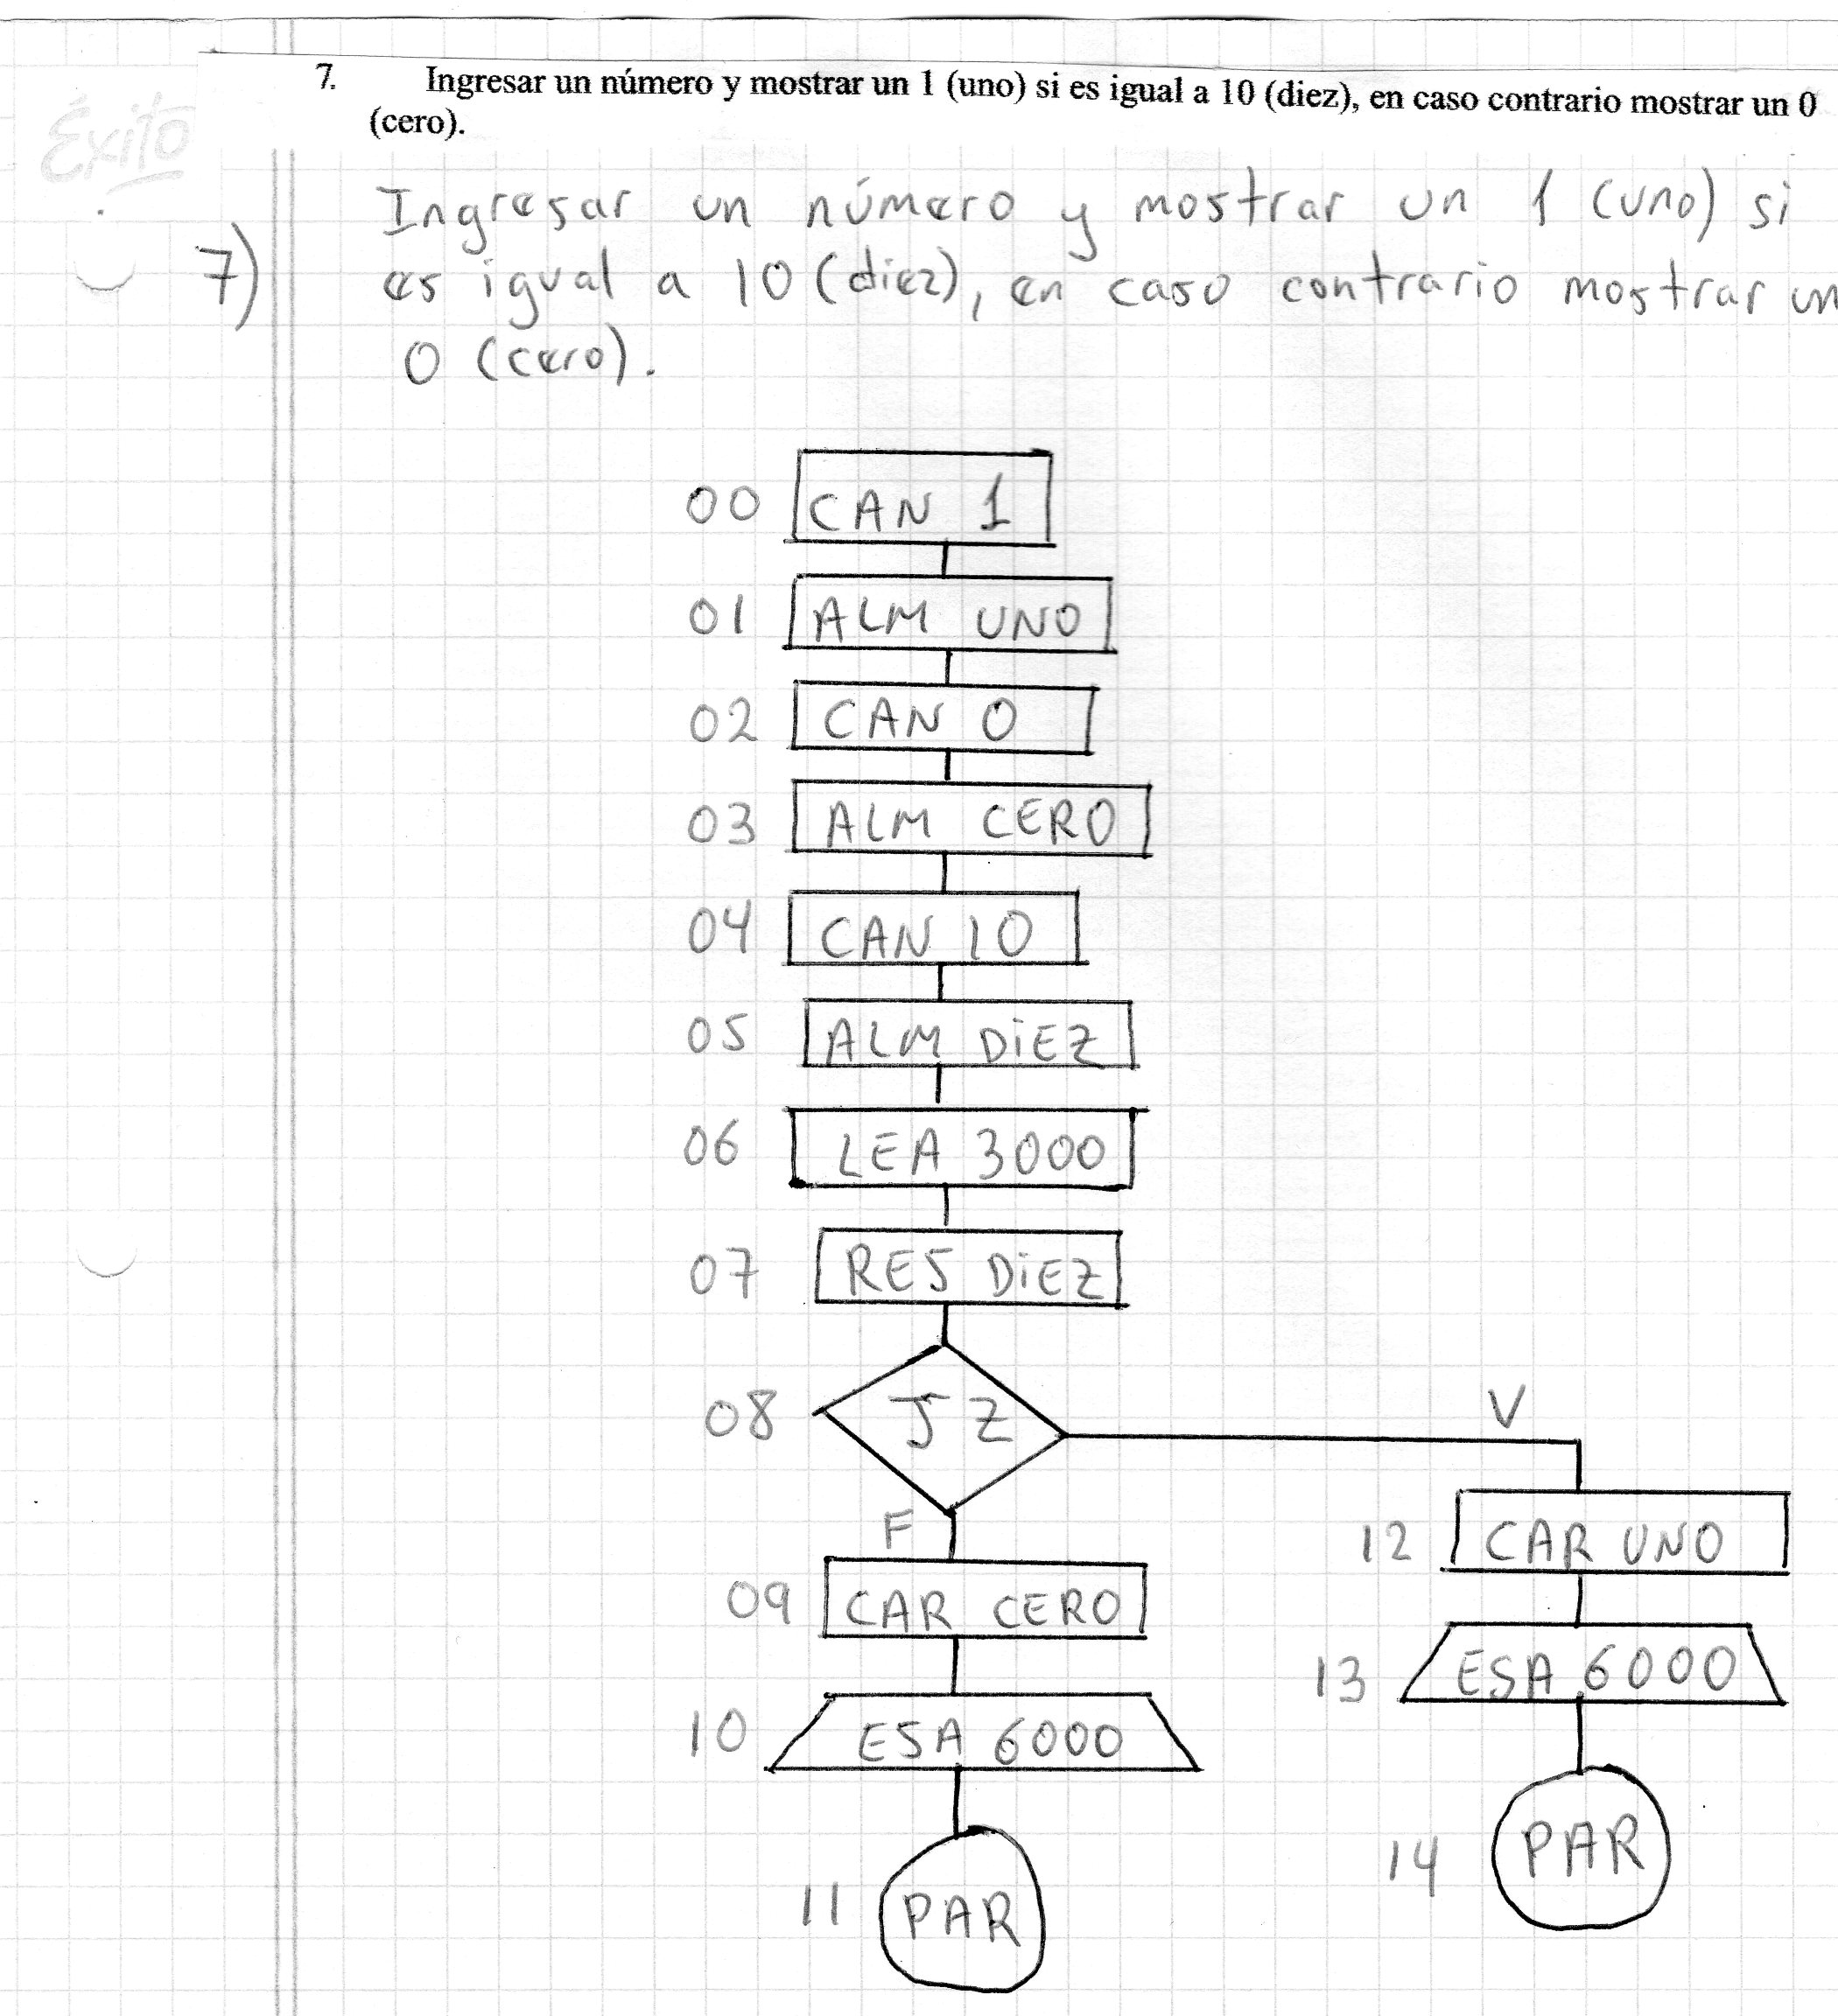 7. Ingresar un número y mostrar un 1 (uno) si es igual a 10 (diez), en caso contrario mostrar un 0
(cero).
Éxito
Ingresar un número y mostrar un 1 (uno) si
7) es igual a 10 (diez), en caso contrario mostrar un
0 (cero).
00 CAN 1
01 ALM UNO
02 CAN 0
03 ALM CERO
04 CAN 10
05 ALM DiEZ
06 LEA 3000
07 RES DiEZ
08 JZ V
F
12 CAR UNO
09 CAR CERO
13 ESA 6000
10 ESA 6000
14 PAR
11 PAR